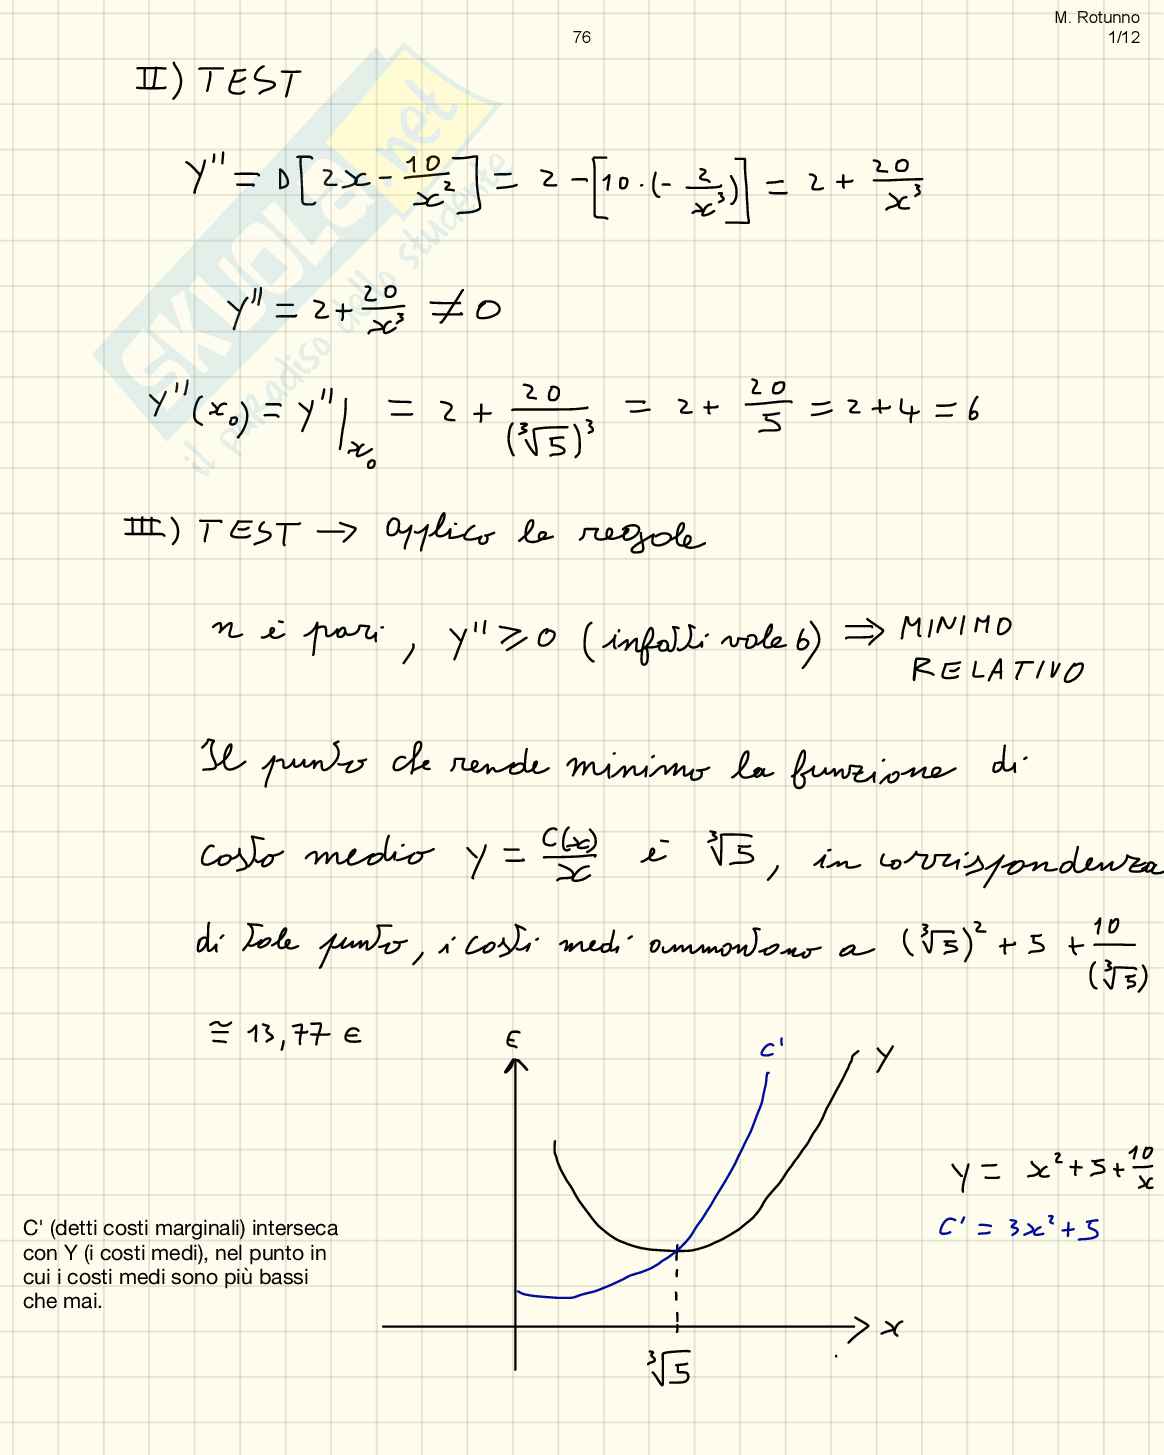 M. Rotunno
76
1/12
II) TEST
y'' = D[2x - 10/x²] = 2 - [10·(-2/x³)] = 2 + 20/x³
y'' = 2 + 20/x³ ≠ 0
y''(x₀) = y''|x₀ = 2 + 20/(∛5)³ = 2 + 20/5 = 2 + 4 = 6
III) TEST → applico le regole
n è pari, y'' ⩾ 0 (infatti vale 6) ⇒ MINIMO
RELATIVO
Il punto che rende minimo la funzione di
costo medio y = C(x)/x è ∛5, in corrispondenza
di tale punto, i costi medi ammontano a (∛5)² + 5 + 10/(∛5)
≅ 13,77 €
€
C'
y
y = x² + 5 + 10/x
C' = 3x² + 5
C' (detti costi marginali) interseca
con Y (i costi medi), nel punto in
cui i costi medi sono più bassi
che mai.
x
∛5
SKUOLA.net
il paradiso dello studente